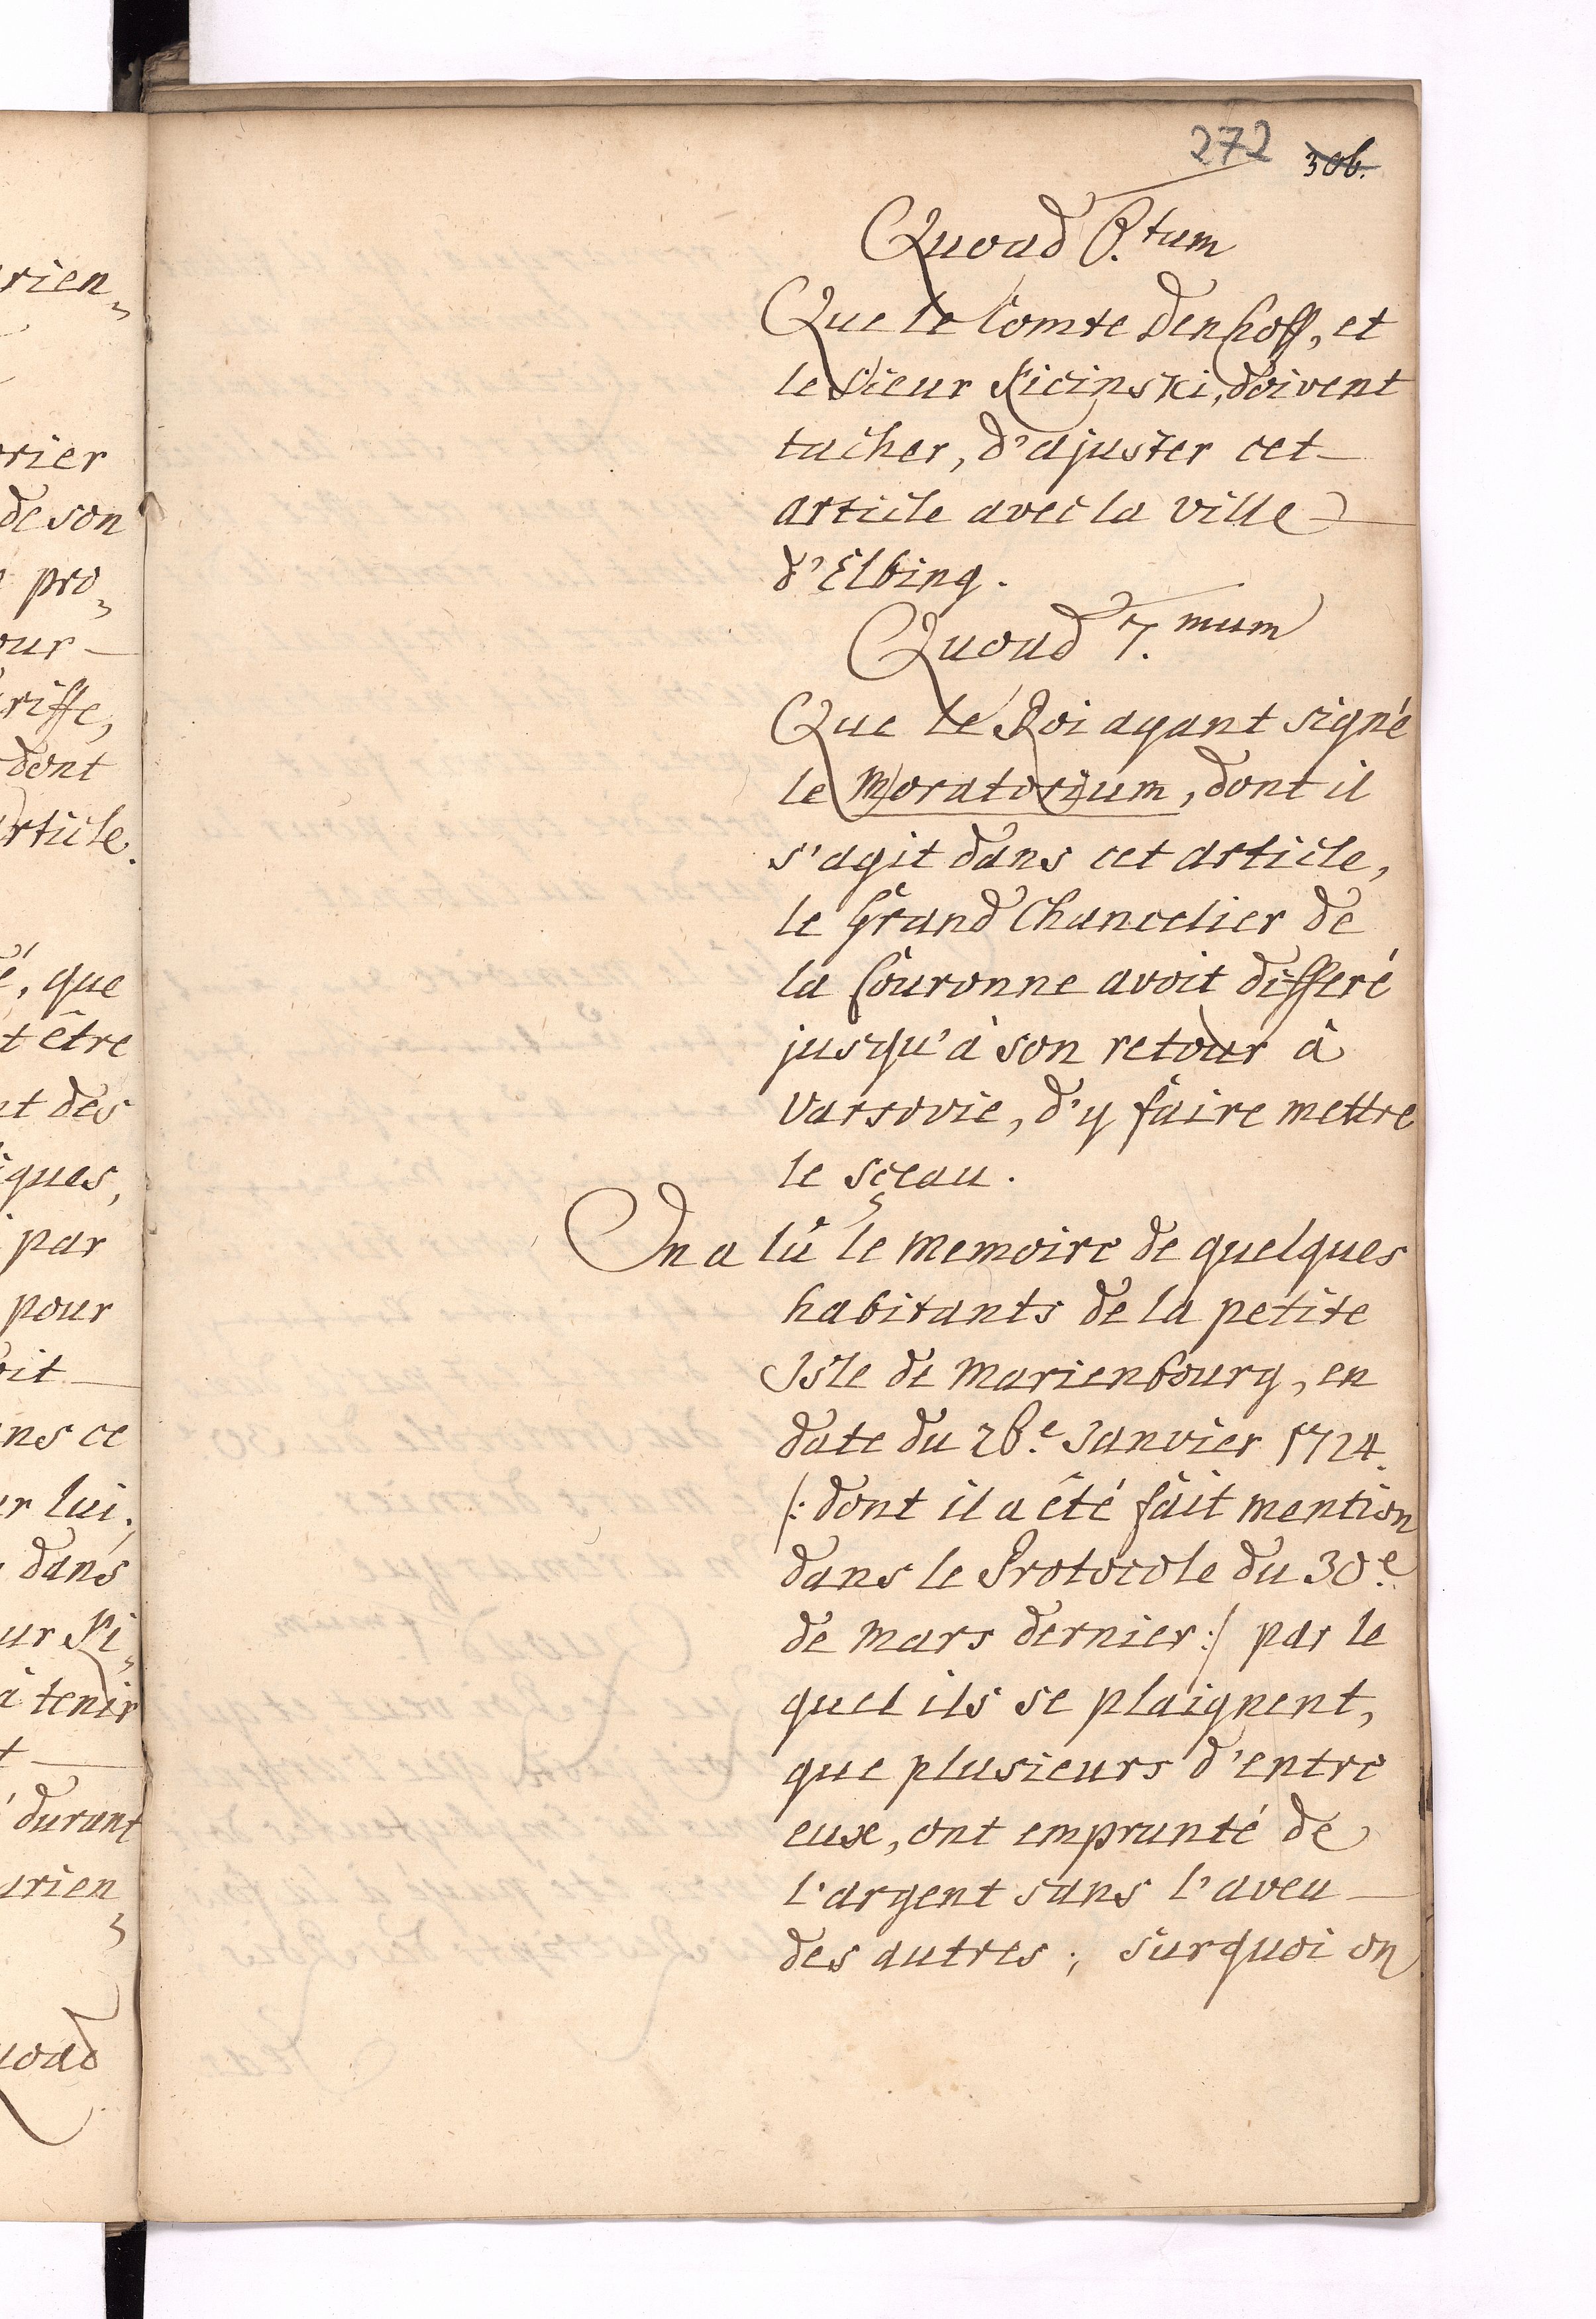 272 306.
Quoad 6.tum
Que le Comte Denhoff, et
le Sieur Kicinski, doivent
tacher, d'ajuster cet
article avec la ville
d'Elbing.
Quoad 7.mum
Que le Roi ayant signé
le Moratorium, dont il
s'agit dans cet article,
le Grand Chancelier de
la Couronne avoit differé
jusqu'à son retour à
Varsovie, d'y faire mettre
le sçeau.
On a lû le memoire de quelques
habitants de la petite
Isle de Marienbourg, en
date du 26.e Janvier 1724.
/: dont il a été fait mention
dans le Protocole du 30.e
de mars dernier :/ par le
quel ils se plaignent,
que plusieurs d'entre
eux, ont emprunté de
l'argent sans l'aveu
des autres; surquoi on
rien
rier
de son
pro
our
riffe,
dont
article.
é, que
t être
nt des
iques,
par
pour
oit
ns ce
r lui.
dans
ur Ki
à tenir
t
durant
arien
uoad